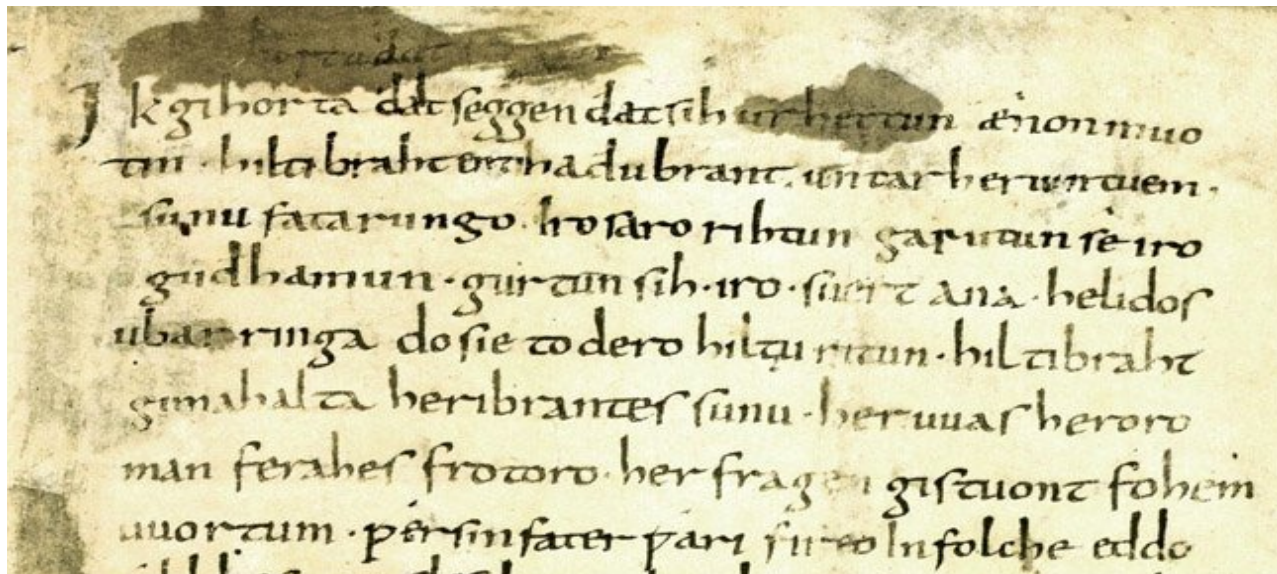 Ik gihorta dat seggen dat sih urhettun ænon muo
tin · hiltibraht enti hadubrant · untar heriun tuem ·
sunu fatarungo · iro saro rihtun garutun sê iro
gudhamun · gurtun sih · iro · suert ana · helidos
ubar ringa do sie to dero hiltu ritun · hiltibraht
gimahalta heribrantes sunu · her uuas heroro
man ferahes frotoro · her fragen gistuont fohem
uuortum · ƿer sin fater ƿari fireo In folche eddo